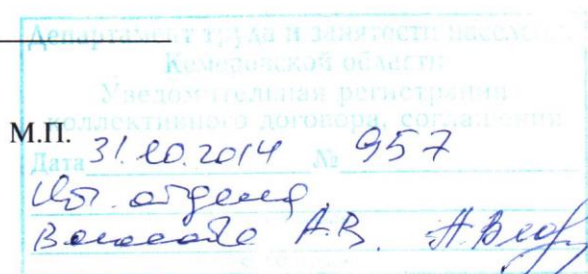 Департамент труда и занятости населения
Кемеровской области
Уведомительная регистрация
коллективного договора, соглашения
М.П.
Дата 31.10.2014 № 957
отдела
А.В.